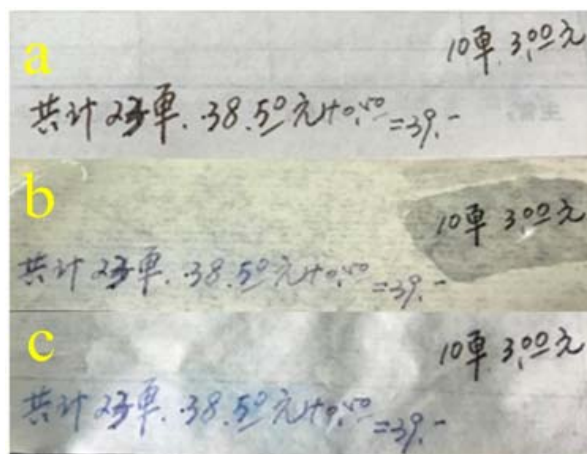 a
10单 3.00元
共计23单. 38.50元+0.50=39.-
b
10单 3.00元
共计23单. 38.50元+0.50=39.-
c
10单 3.00元
共计23单. 38.50元+0.50=39.-